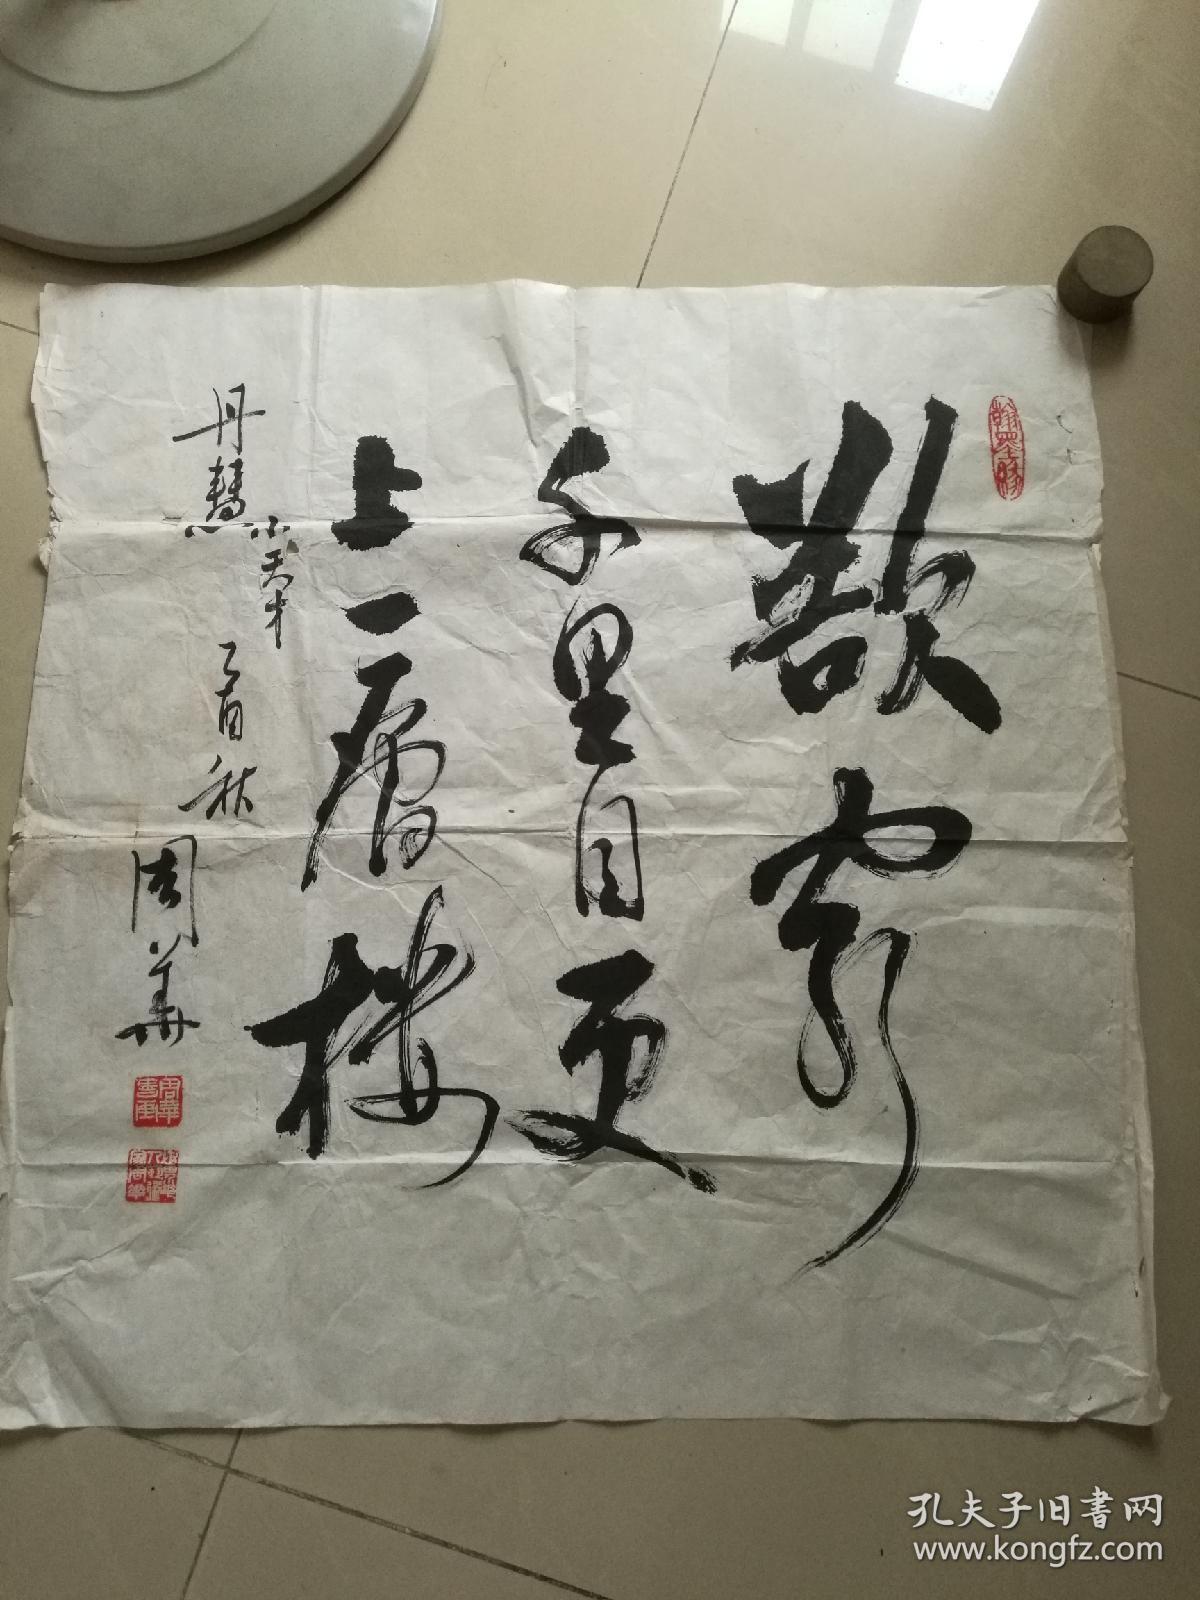 欲穷
千里目更
上一层楼
丹慧小天才
乙酉秋
周华
周华书画
孔夫子旧书网
www.kongfz.com